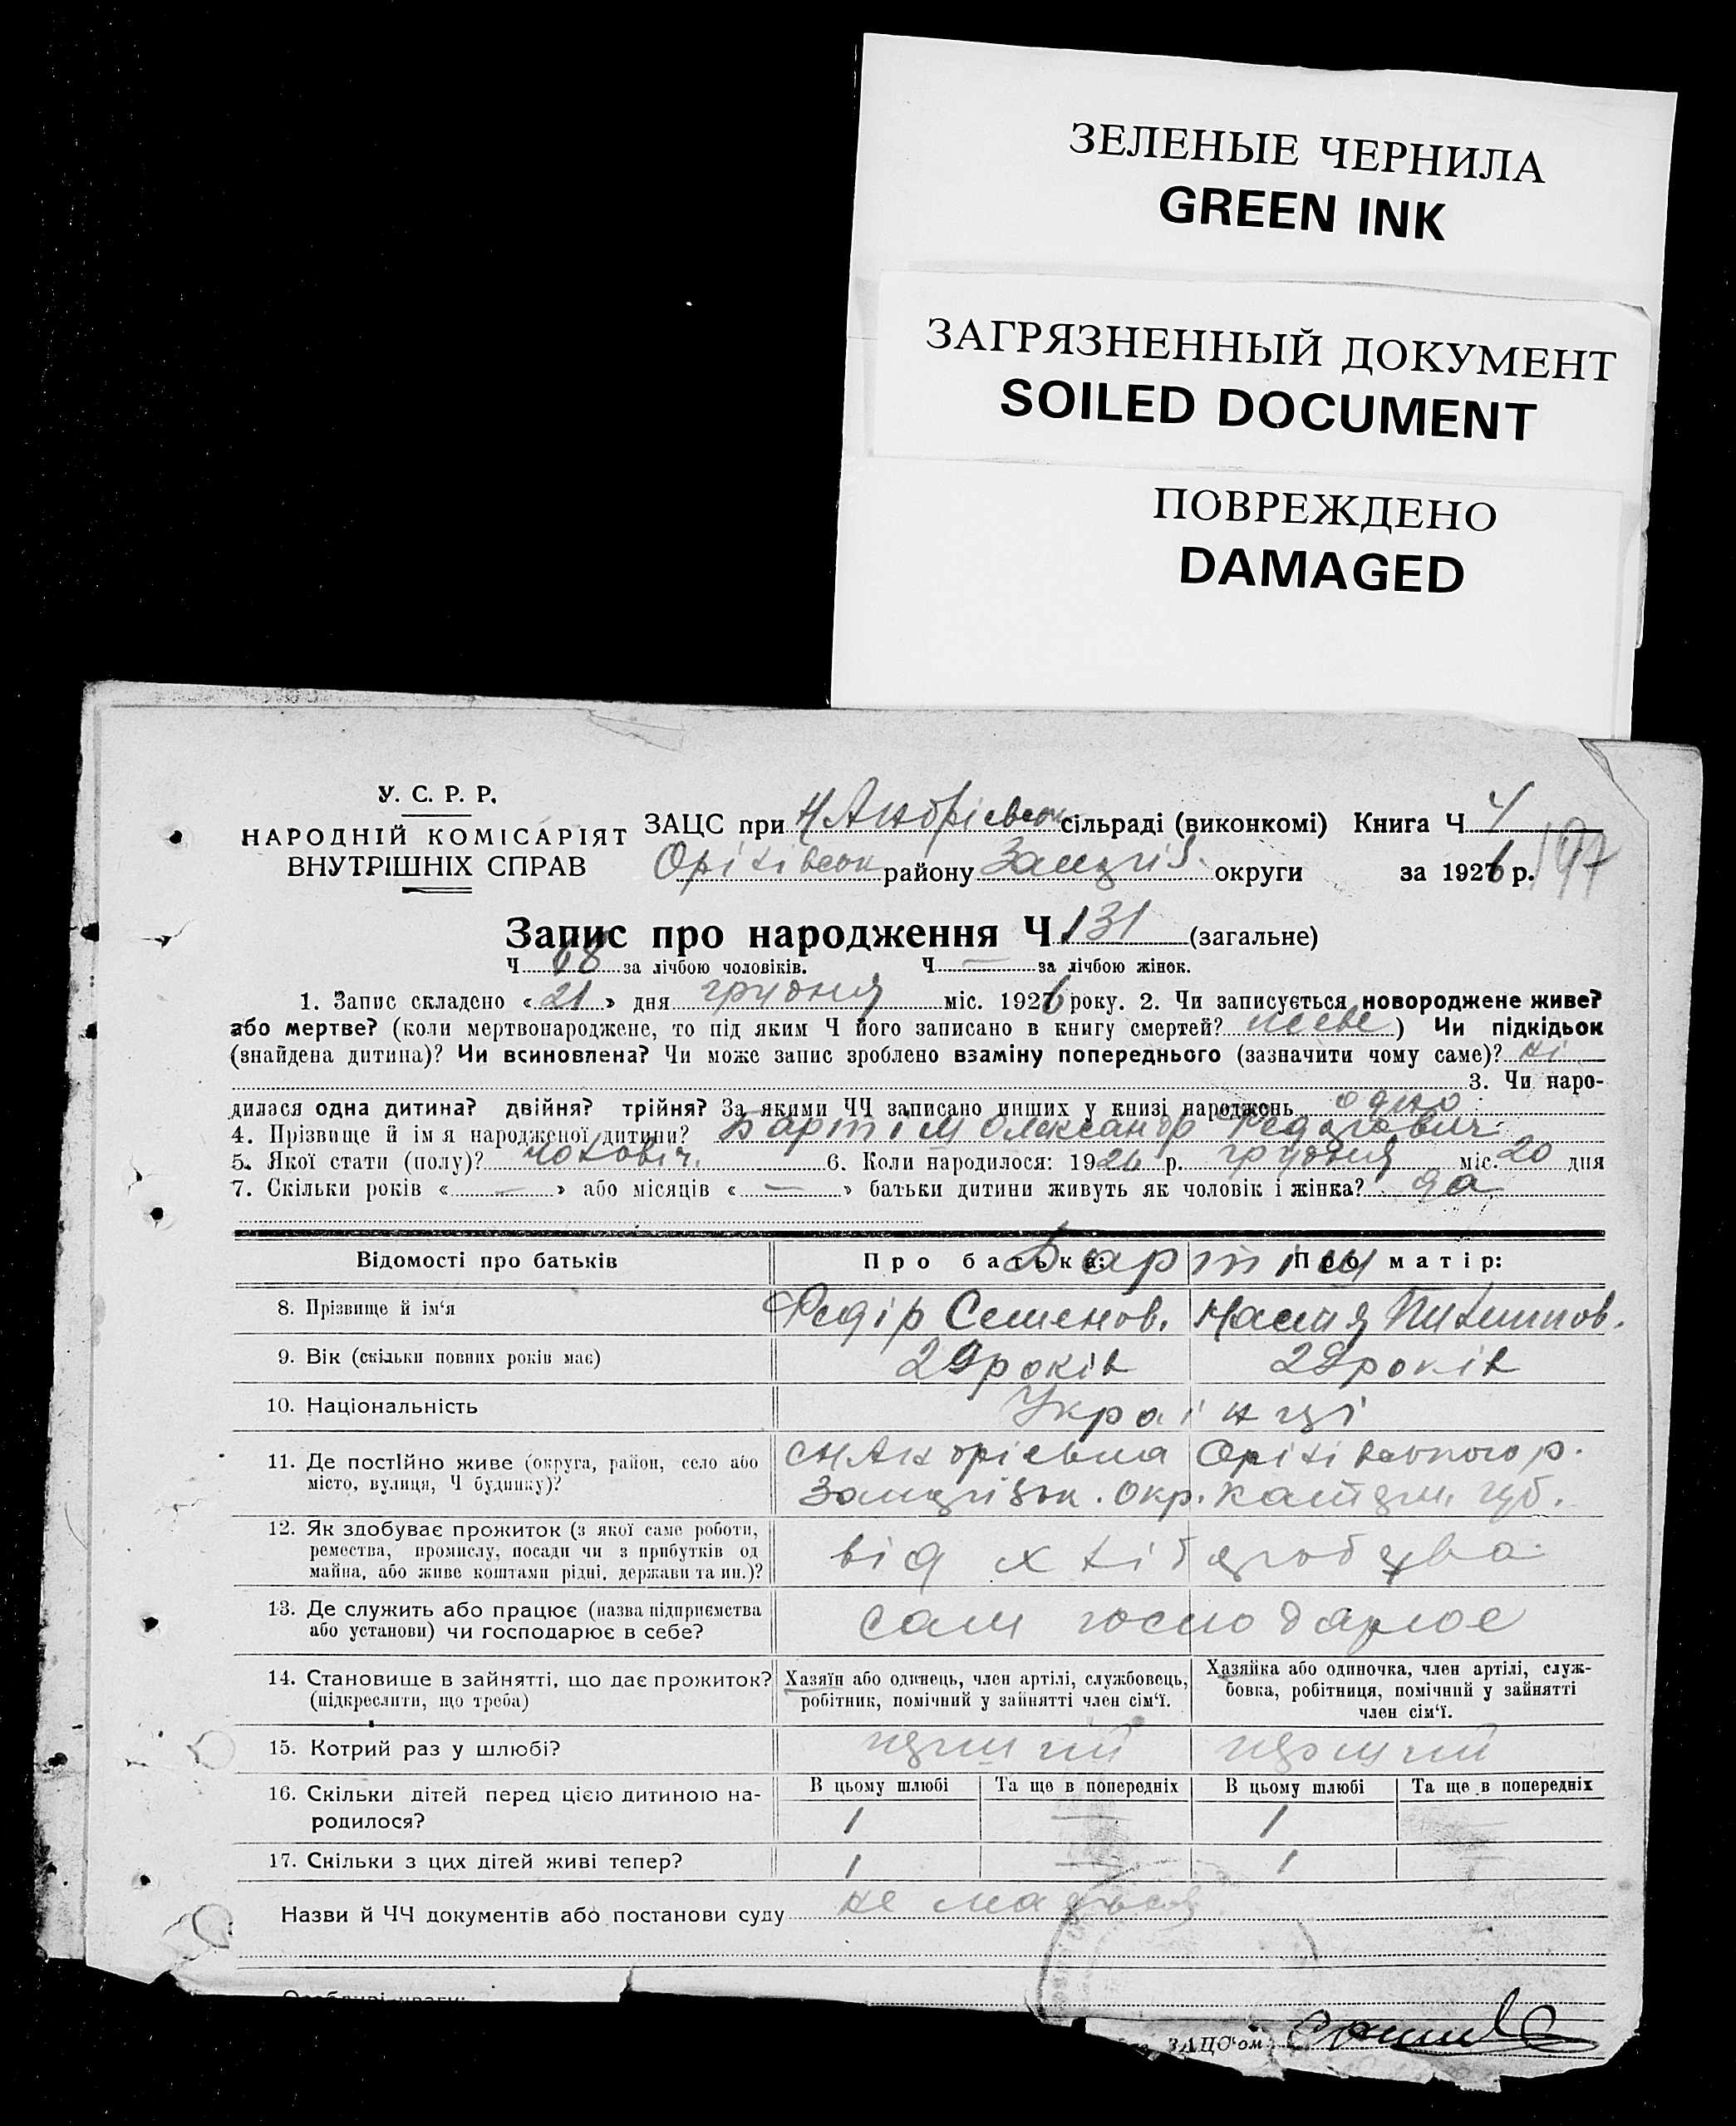 ЗЕЛЕНЫЕ ЧЕРНИЛА
GREEN INK
ЗАГРЯЗНЕННЫЙ ДОКУМЕНТ
SOILED DOCUMENT
ПОВРЕЖДЕНО
DAMAGED
У. С. Р. Р.
НАРОДНІЙ КОМІСАРІЯТ
ВНУТРІШНІХ СПРАВ
ЗАЦС при Н Андрієвськ сільраді (виконкомі) Книга Ч 4
Оріхівськ району Запоріз. округи за 1926 р. 197
Запис про народження Ч 131 (загальне)
Ч 68 за лічбою чоловіків. Ч — за лічбою жінок.
1. Запис складено « 21 » дня грудня міс. 1926 року. 2. Чи записується новороджене живе?
або мертве? (коли мертвонароджене, то під яким Ч його записано в книгу смертей? живе ) Чи підкідьок
(знайдена дитина)? Чи всиновлена? Чи може запис зроблено взаміну попереднього (зазначити чому саме)? ні
3. Чи наро-
дилася одна дитина? двійня? трійня? За якими ЧЧ записано инших у книзі народжень одно
4. Прізвище й імя народженої дитини? Бартіш Олександр Федорович
5. Якої стати (полу)? чоловіч. 6. Коли народилося: 1926 р. грудня міс. 20 дня
7. Скільки років « — » або місяців « — » батьки дитини живуть як чоловік і жінка? да
Відомості про батьків Про батька: Про матір:
Бартіш
8. Прізвище й ім'я Федір Семенов. Настя Пилипов.
9. Вік (скільки повних років має) 29 років 29 років
10. Національність Українці
11. Де постійно живе (округа, район, село або
місто, вулиця, Ч будинку)?
с Н Андрієвка Оріхівського р.
Запорізьк. окр. Катерин. губ.
12. Як здобуває прожиток (з якої саме роботи,
ремества, промислу, посади чи з прибутків од
майна, або живе коштами рідні, держави та ин.)?
від хліборобства
13. Де служить або працює (назва підприємства
або установи) чи господарює в себе?
сам господарює
14. Становище в зайнятті, що дає прожиток?
(підкреслити, що треба)
Хазяїн або одинець, член артілі, службовець,
робітник, помічний у зайнятті член сім'ї.
Хазяйка або одиночка, член артілі, служ-
бовка, робітниця, помічний у зайнятті
член сім'ї.
15. Котрий раз у шлюбі? перший перший
16. Скільки дітей перед цією дитиною на-
родилося?
В цьому шлюбі Та ще в попередніх В цьому шлюбі Та ще в попередніх
1 — 1 —
17. Скільки з цих дітей живі тепер? 1 — 1 —
Назви й ЧЧ документів або постанови суду не мається
Особливі уваги:
ЗАЦС'ом